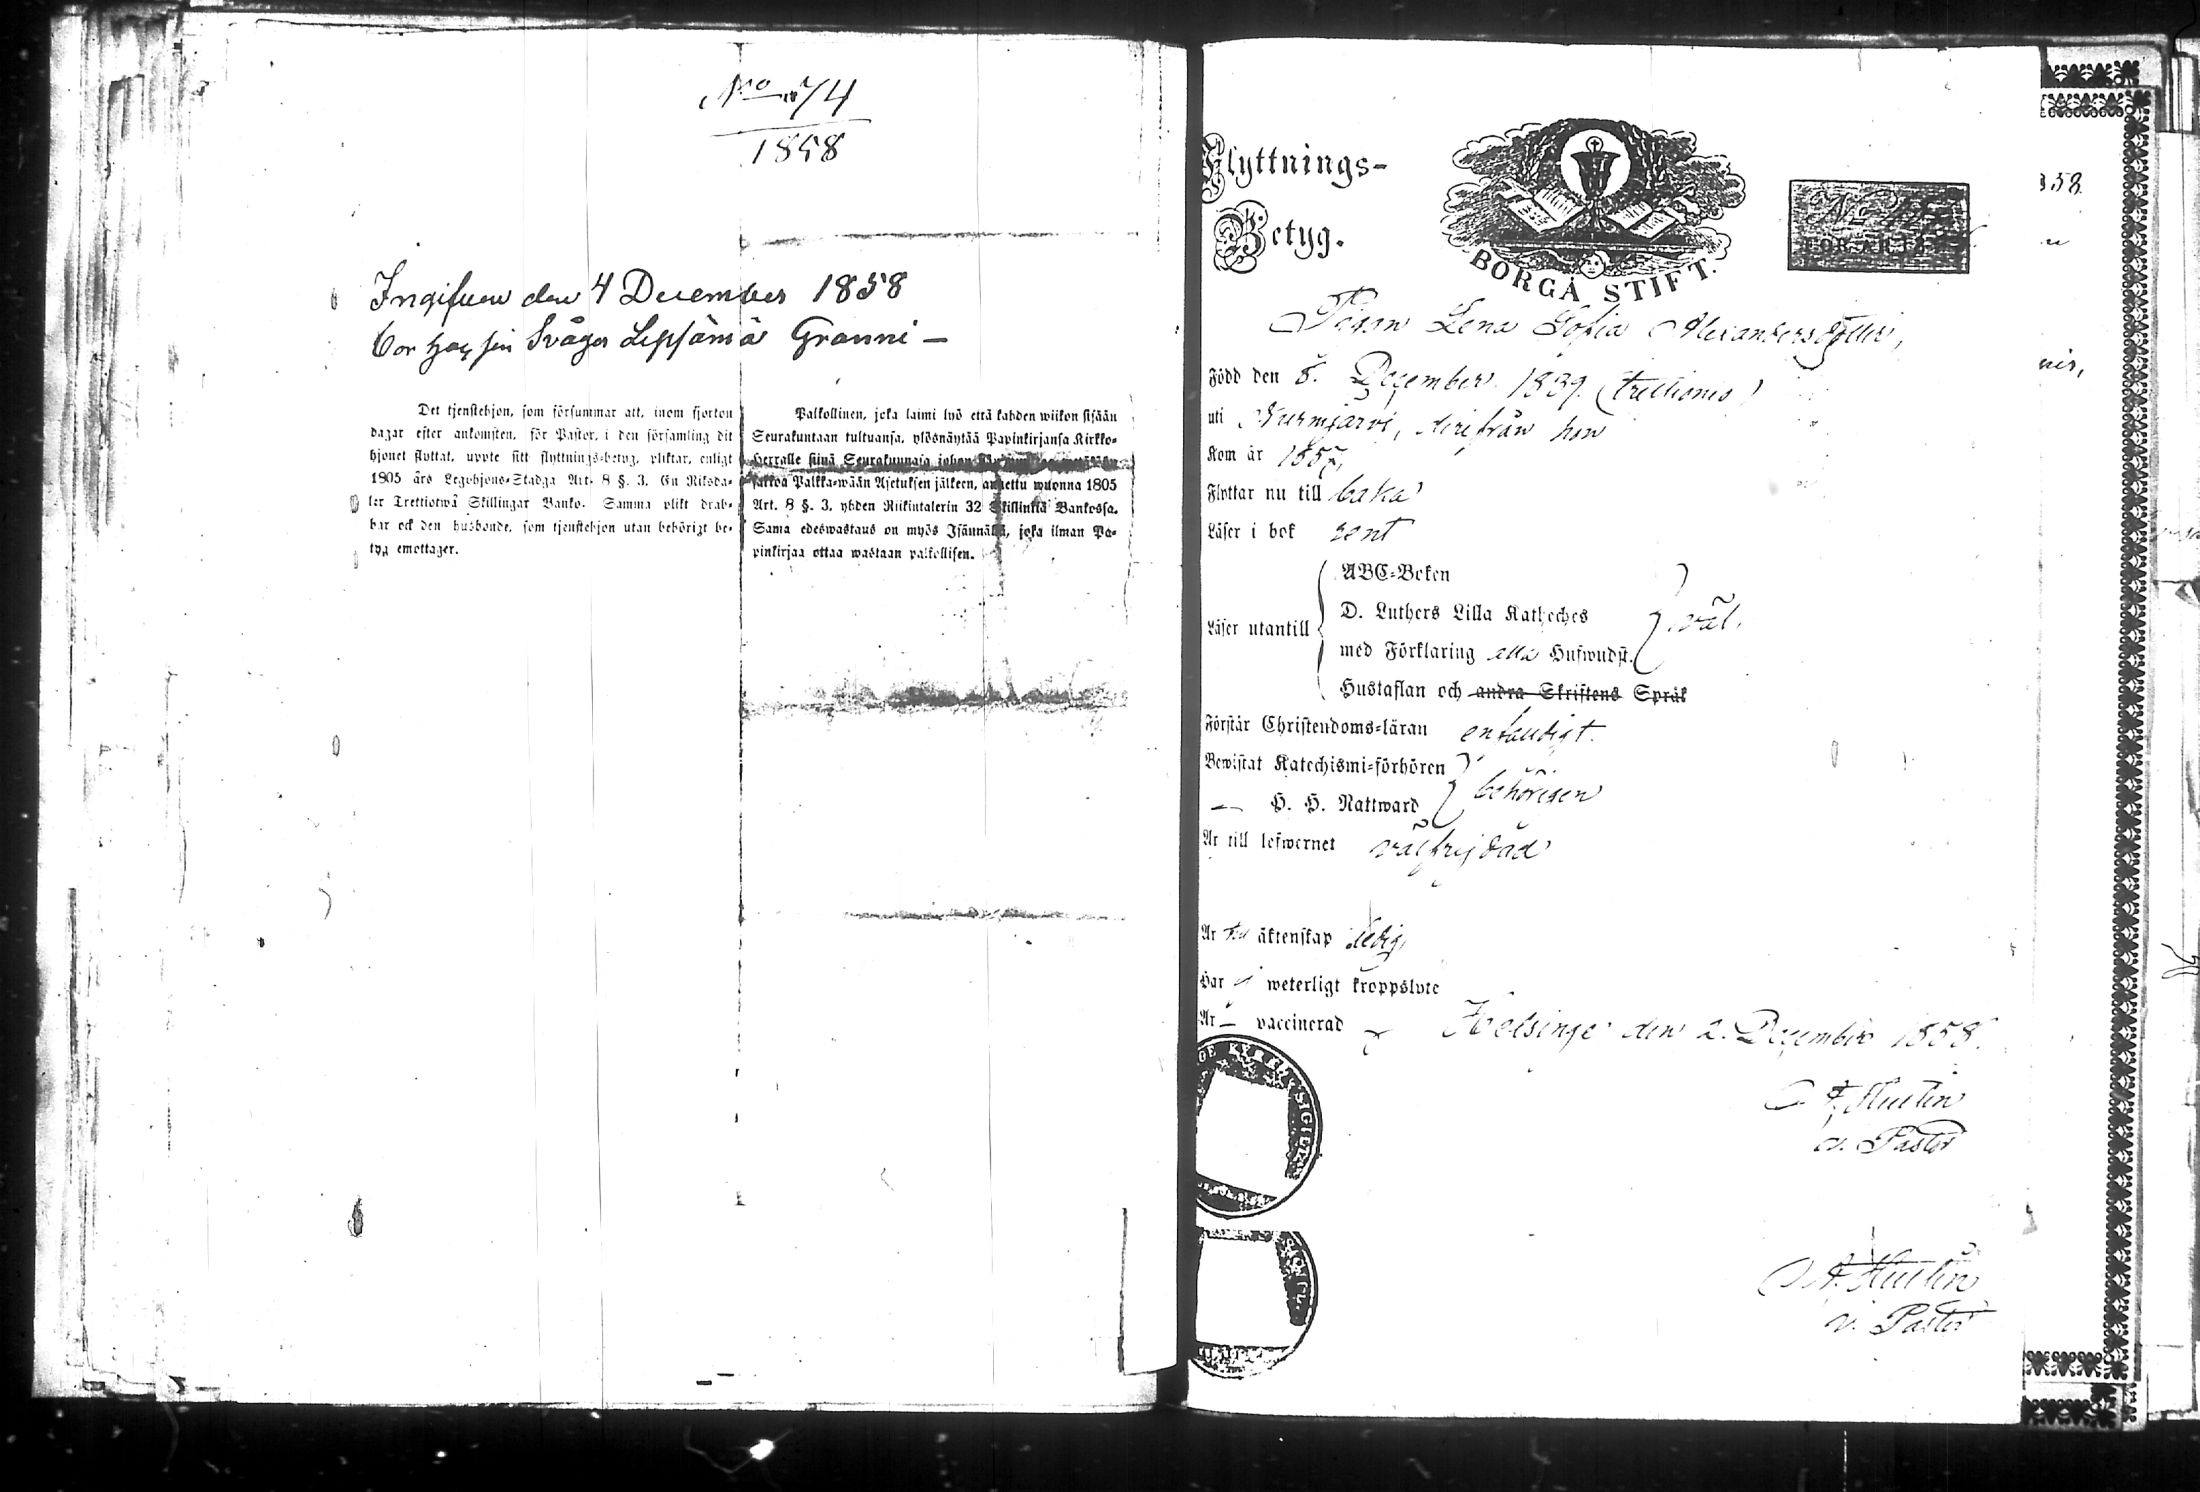 No 74
1858
Ingifven den 4 December 1858
Bor hos sin Svåger Lepsämä Granni —
Det tjenstehjon, som försummar att, inom fjorton
dagar efter ankomsten, för Pastor, i den församling dit
hjonet flyttat, uppte sitt flyttnings-betyg, pliktar, enligt
1805 års Legohjons-Stadga Art. 8 §. 3. En Riksda-
ler Trettiotwå Skillingar Banko. Samma plikt drab-
bar ock den husbonde, som tjenstehjon utan behörigt be-
tyg emottager.
Palkollinen, joka laimi lyö että kahden wiikon sisään
Seurakuntaan tultuansa, ylösnäytää Papinkirjansa Kirkko-
Herralle siinä Seurakunnasa johon
sakkoa Palkka-wään Asetuksen jälkeen, annettu wuonna 1805
Art. 8 §. 3. yhden Riikintalerin 32 Skillinkiä Bankossa.
Sama edeswastaus on myös Isännällä, joka ilman Pa-
pinkirjaa ottaa wastaan palkollisen.
Flyttnings-
Betyg.
BORGÅ STIFT.
No
FÖR ÅR 18
Pigan Lena Sofia Alexandersdotter,
Född den 8. December 1839. (trettionio)
uti Nurmijärvi, derifrån hon
Kom år 1857,
Flyttar nu till baka
Läser i bok rent
Läser utantill
ABC-Boken
D. Luthers Lilla Katheches
med Förklaring alla Hufwudst.
Hustaflan och andra Skriftens Språk
väl.
Förstår Christendoms-läran enfaldigt.
Bewistat Katechismi-förhören
— H. H. Nattward
behörigen
Är till lefwernet välfrejdad
Är till äktenskap ledig,
Har ej weterligt kroppslyte
Är — vaccinerad
Helsinge den 2. December 1858.
v. Pastor
v. Pastor
58